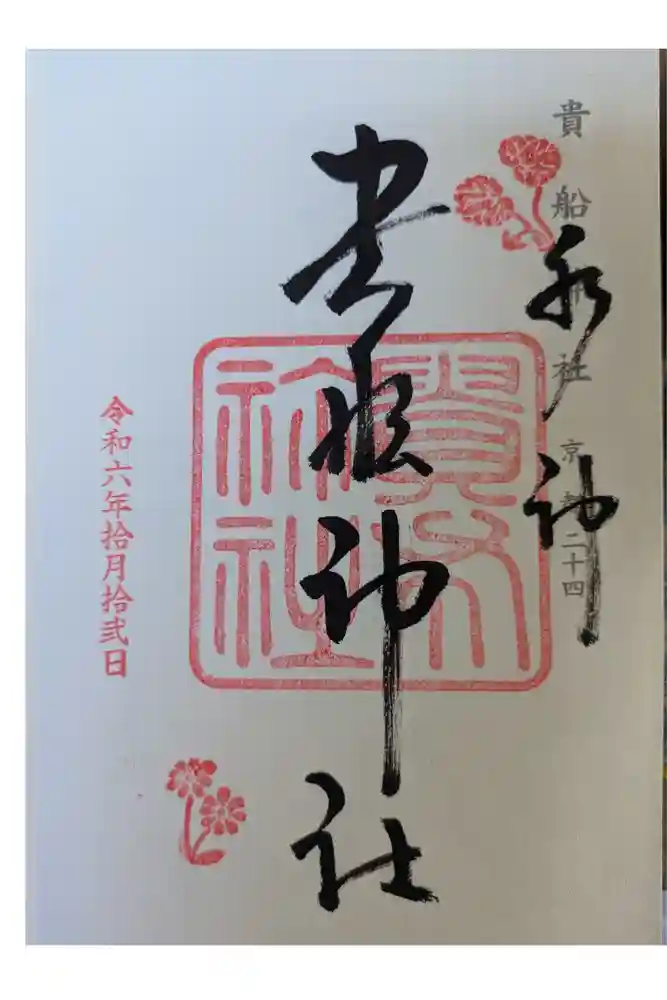 貴船神社 京都二十四
水神
貴船神社
貴布
祢社
令和六年拾月拾弐日